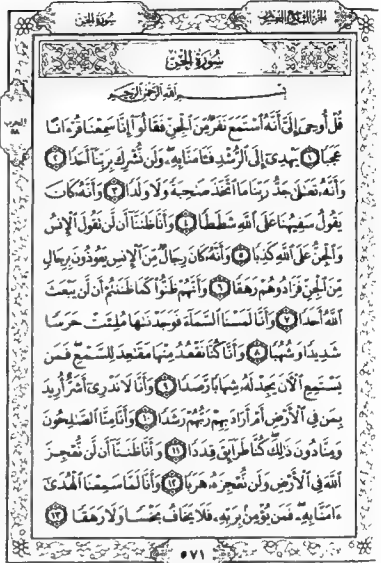 الجزء التاسع والعشرون
سورة الجن
سورة الجن
بسم الله الرحمن الرحيم
قُلْ أُوحِىَ إِلَىَّ أَنَّهُ ٱسْتَمَعَ نَفَرٌ مِّنَ ٱلْجِنِّ فَقَالُوٓا۟ إِنَّا سَمِعْنَا قُرْءَانًا
عَجَبًا ١ يَهْدِىٓ إِلَى ٱلرُّشْدِ فَـَٔامَنَّا بِهِۦ وَلَن نُّشْرِكَ بِرَبِّنَآ أَحَدًا ٢
وَأَنَّهُۥ تَعَـٰلَىٰ جَدُّ رَبِّنَا مَا ٱتَّخَذَ صَـٰحِبَةً وَلَا وَلَدًا ٣ وَأَنَّهُۥ كَانَ
يَقُولُ سَفِيهُنَا عَلَى ٱللَّهِ شَطَطًا ٤ وَأَنَّا ظَنَنَّآ أَن لَّن تَقُولَ ٱلْإِنسُ
وَٱلْجِنُّ عَلَى ٱللَّهِ كَذِبًا ٥ وَأَنَّهُۥ كَانَ رِجَالٌ مِّنَ ٱلْإِنسِ يَعُوذُونَ بِرِجَالٍ
مِّنَ ٱلْجِنِّ فَزَادُوهُمْ رَهَقًا ٦ وَأَنَّهُمْ ظَنُّوا۟ كَمَا ظَنَنتُمْ أَن لَّن يَبْعَثَ
ٱللَّهُ أَحَدًا ٧ وَأَنَّا لَمَسْنَا ٱلسَّمَآءَ فَوَجَدْنَـٰهَا مُلِئَتْ حَرَسًا
شَدِيدًا وَشُهُبًا ٨ وَأَنَّا كُنَّا نَقْعُدُ مِنْهَا مَقَـٰعِدَ لِلسَّمْعِ فَمَن
يَسْتَمِعِ ٱلْـَٔانَ يَجِدْ لَهُۥ شِهَابًا رَّصَدًا ٩ وَأَنَّا لَا نَدْرِىٓ أَشَرٌّ أُرِيدَ
بِمَن فِى ٱلْأَرْضِ أَمْ أَرَادَ بِهِمْ رَبُّهُمْ رَشَدًا ١٠ وَأَنَّا مِنَّا ٱلصَّـٰلِحُونَ
وَمِنَّا دُونَ ذَٰلِكَ كُنَّا طَرَآئِقَ قِدَدًا ١١ وَأَنَّا ظَنَنَّآ أَن لَّن نُّعْجِزَ
ٱللَّهَ فِى ٱلْأَرْضِ وَلَن نُّعْجِزَهُۥ هَرَبًا ١٢ وَأَنَّا لَمَّا سَمِعْنَا ٱلْهُدَىٰٓ
ءَامَنَّا بِهِۦ فَمَن يُؤْمِنۢ بِرَبِّهِۦ فَلَا يَخَافُ بَخْسًا وَلَا رَهَقًا ١٣
الحزب
٥٨
٥٧١